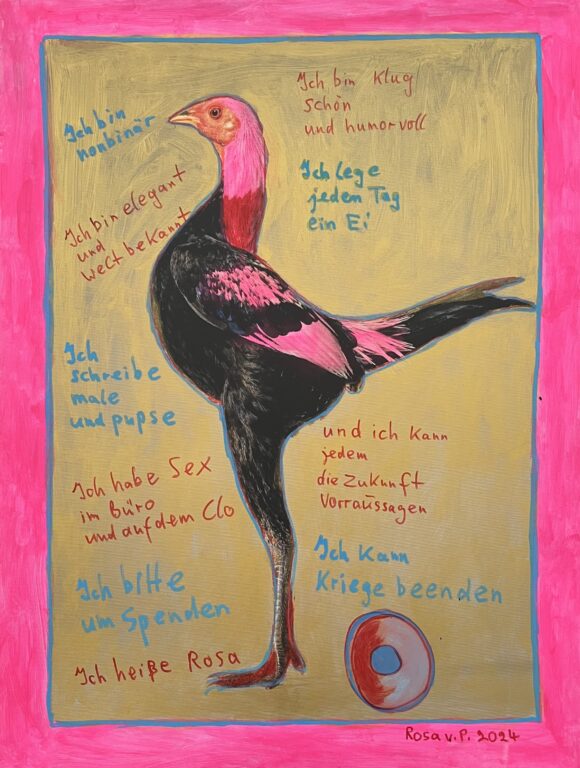 Ich bin
nonbinär
Ich bin Klug
schön
und humorvoll
Ich lege
jeden Tag
ein Ei
Ich bin elegant
und
weltbekannt
Ich
schreibe
male
und pupse
und ich kann
jedem
die Zukunft
Vorraussagen
Ich habe Sex
im Büro
und auf dem Clo
Ich kann
Kriege beenden
Ich bitte
um Spenden
Ich heiße Rosa
Rosa v. P. 2024